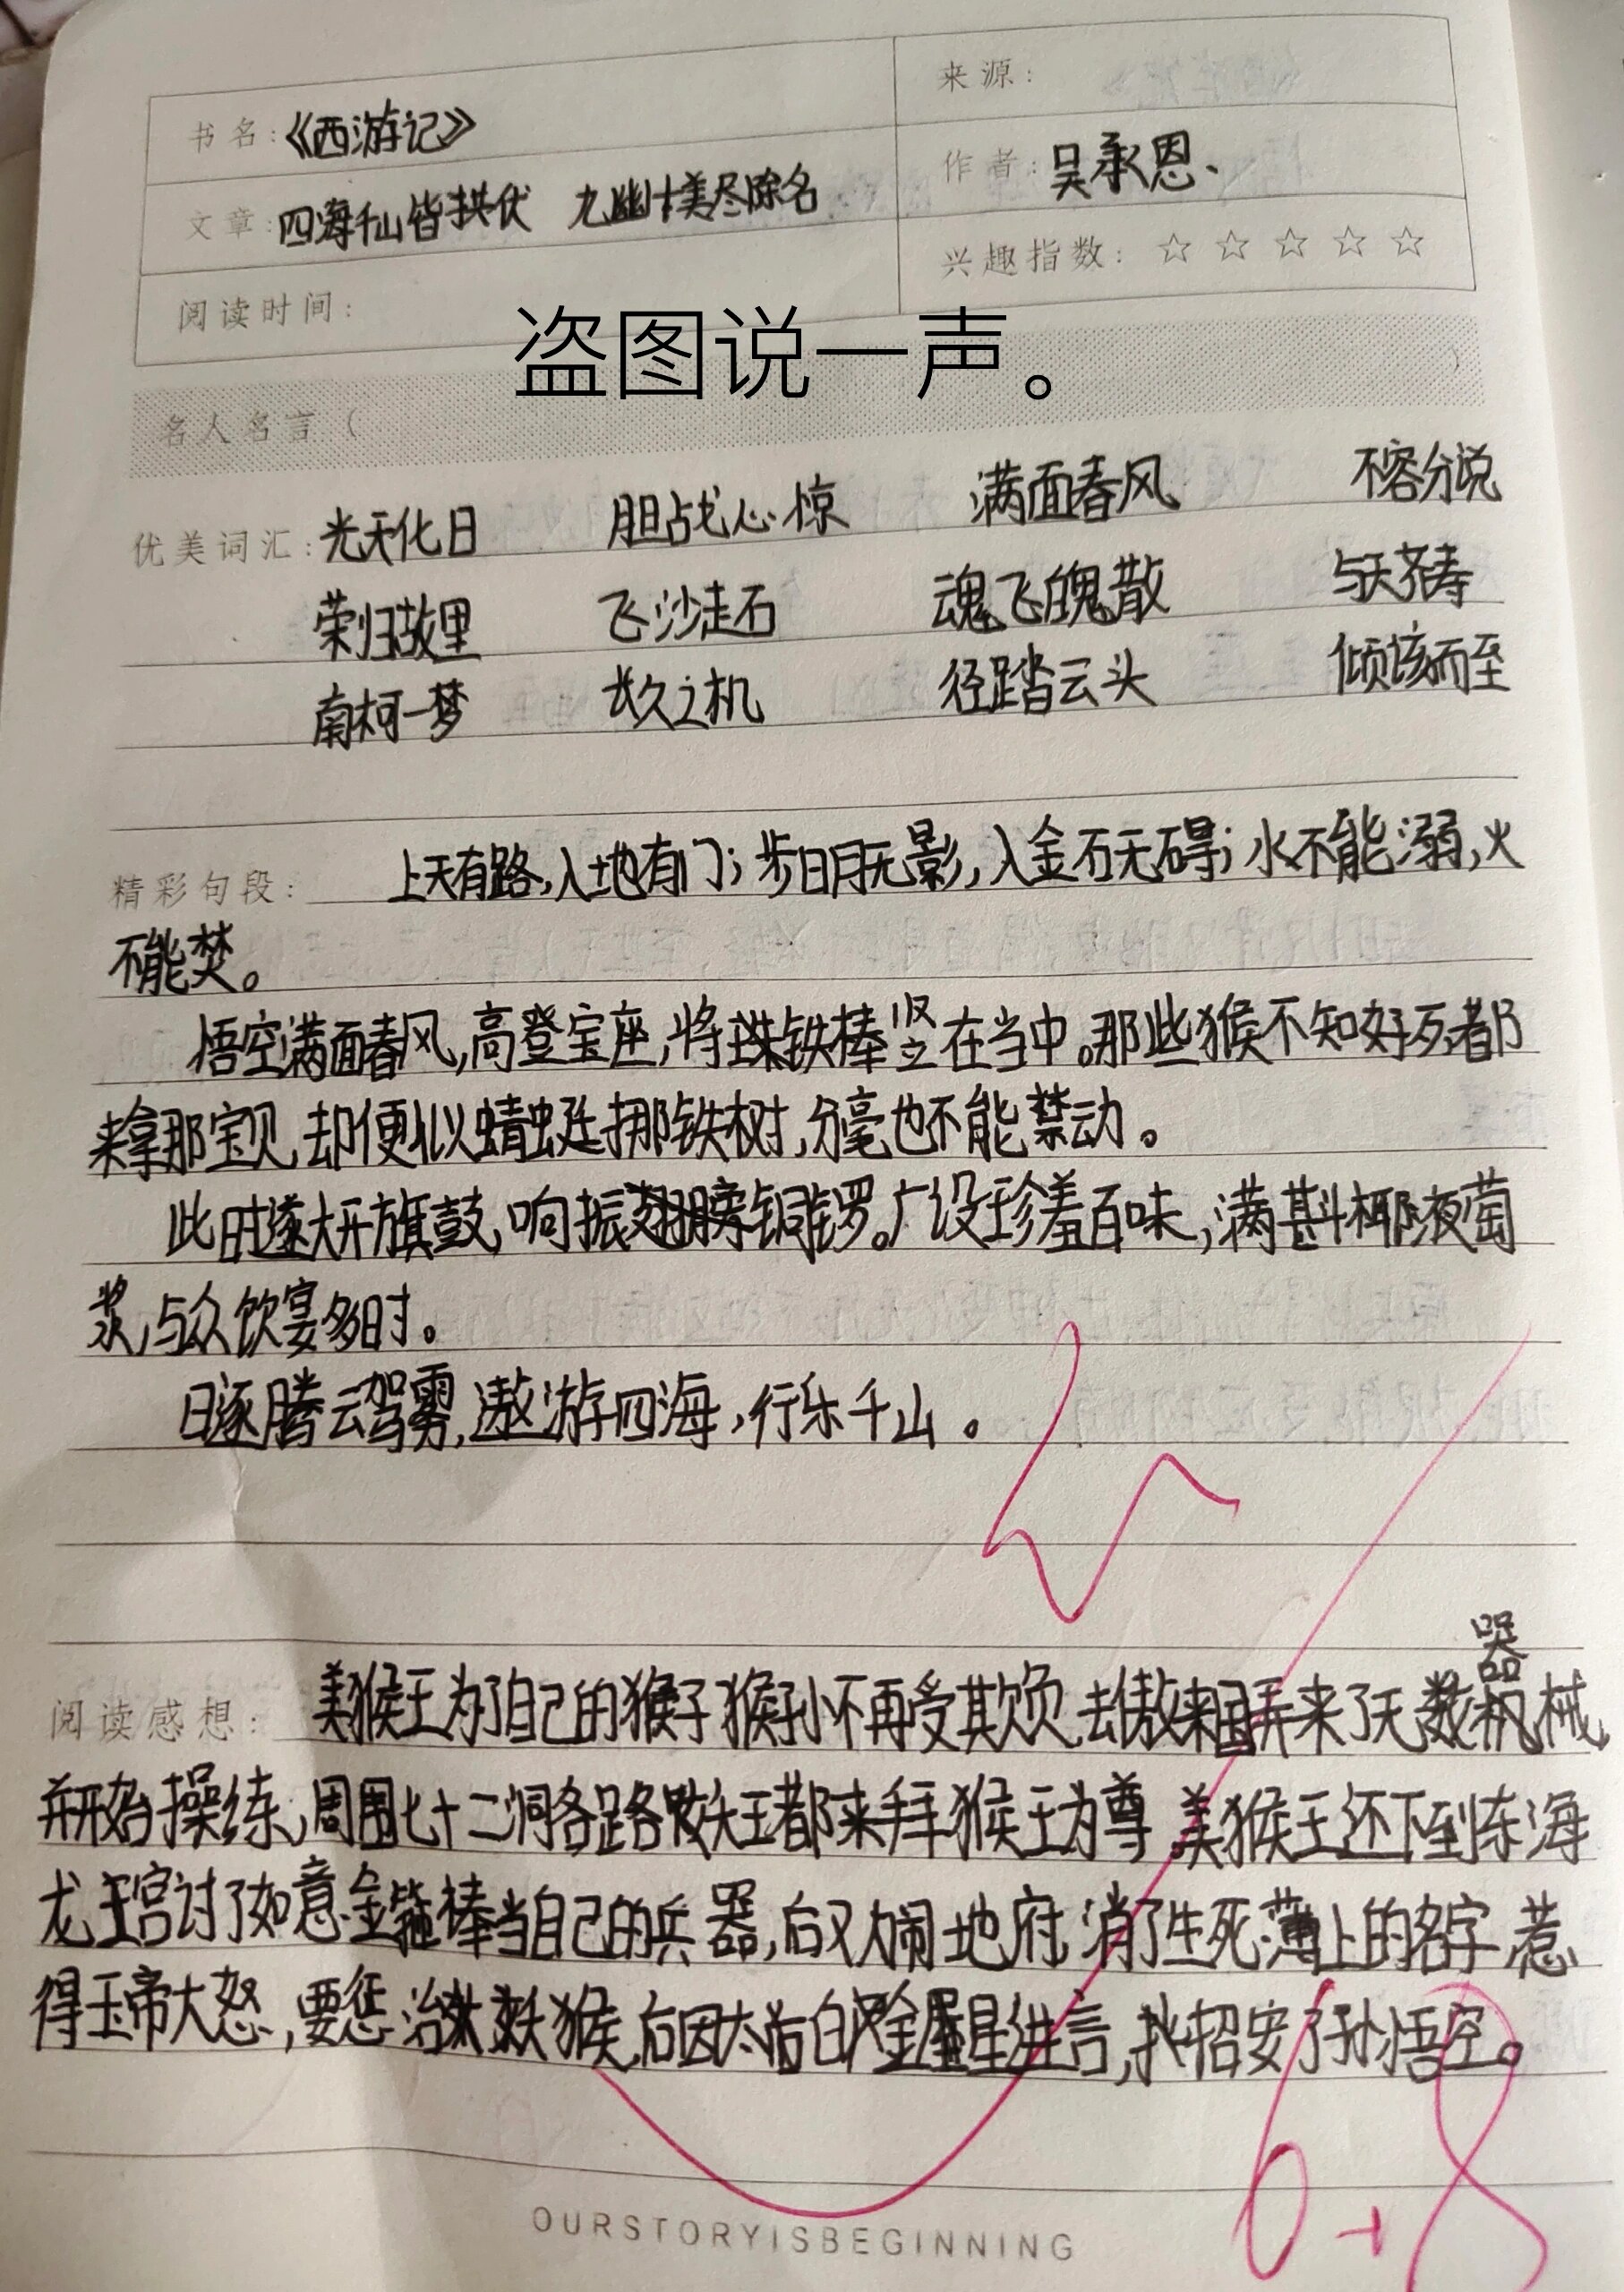 书名:《西游记》
来源:
文章:四海千山皆拱伏 九幽十美尽除名
作者:吴承恩、
阅读时间:
兴趣指数:☆☆☆☆☆
盗图说一声。
名人名言(
)
优美词汇:光天化日 胆战心惊 满面春风 不容分说
荣归故里 飞沙走石 魂飞魄散 与天齐寿
南柯一梦 长久之机 径踏云头 倾该而至
精彩句段: 上天有路,入地有门;步日月无影,入金石无碍;水不能溺,火
不能焚。
悟空满面春风,高登宝座,将铁棒竖在当中。那些猴不知好歹,都
来拿那宝贝,却便似以蜻蜓挪铁树,分毫也不能禁动。
此时遂大开旗鼓,响振铜锣。广设珍羞百味,满斟椰液萄
浆,与众饮宴多时。
日逐腾云驾雾,遨游四海,行乐千山。
阅读感想: 美猴王为了自己的猴子猴孙不再受欺负,去傲来国弄来了无数器械,
并开始操练,周围七十二洞各路妖王都来拜猴王为尊,美猴王还下到东海
龙王宫讨了如意金箍棒当自己的兵器,后又大闹地府,消了生死薄上的名字,惹
得玉帝大怒,要惩治妖猴,后因太白金星进言,招安了孙悟空。
6.8
OURSTORYISBEGINNING